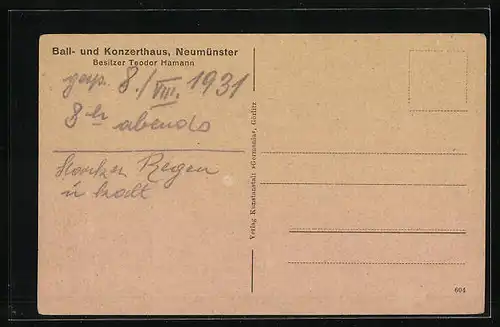 Ball- und Konzerthaus, Neumünster
Besitzer Teodor Hamann
gesp. 8./VIII. 1931
8 Uhr abends
Starker Regen
u kalt
Verlag Kunstanstalt »Germania«, Görlitz
604